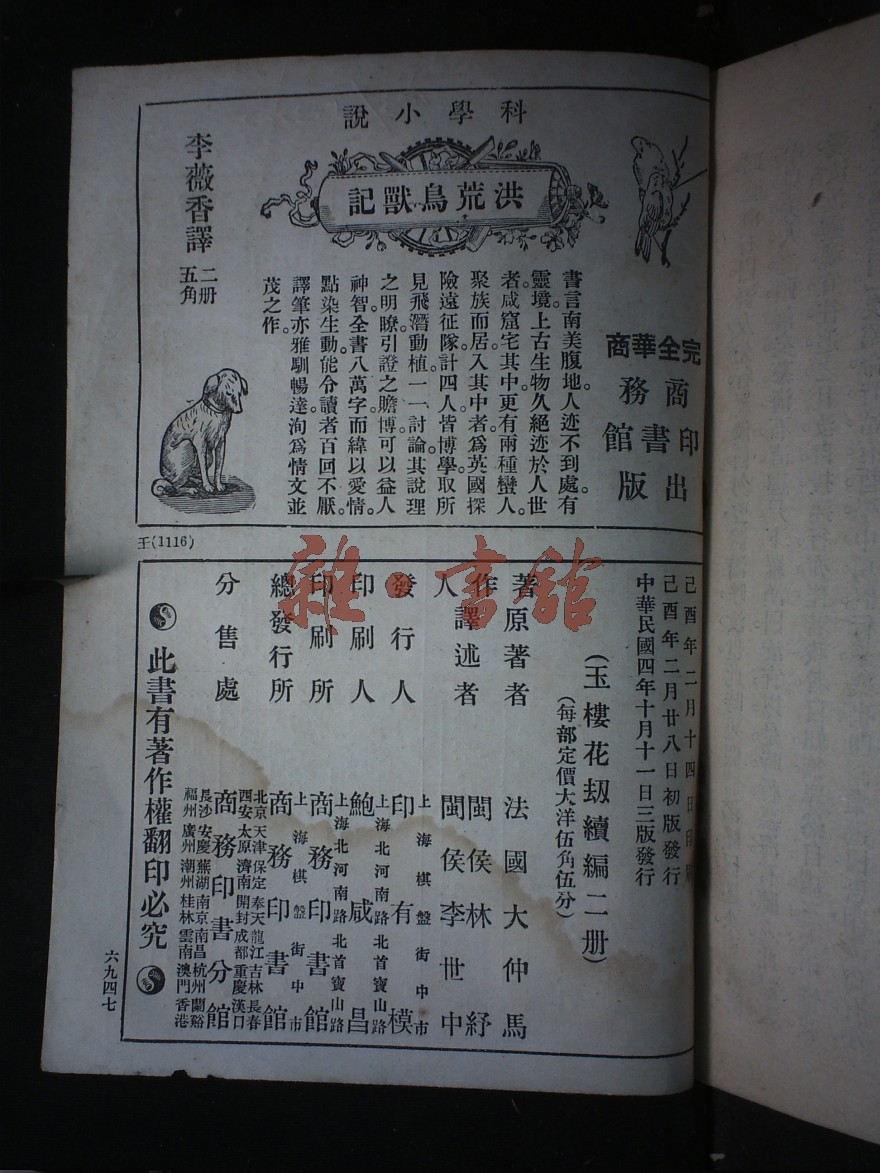 科學小說
洪荒鳥獸記
李薇香譯
二冊
五角
完全華商
商務印書館出版
書言南美腹地人迹不到處有
靈境上古生物久絕迹於人世
者咸窟宅其中更有兩種蠻人。
聚族而居。入其中者爲英國探
險遠征隊計四人皆博學取所
見飛潛動植一一討論。其說理
之明瞭引證之贍博可以益人
神智全書八萬字而緯以愛情。
點染生動能令讀者百回不厭。
譯筆亦雅馴暢達洵爲情文並
茂之作。
王(1116)
己酉年二月十四日印刷
己酉年二月廿八日初版發行
中華民國四年十月十一日三版發行
(玉樓花刼續編二冊)
(每部定價大洋伍角伍分)
著作人
原著者 法國大仲馬
譯述者 閩侯林紓
閩侯李世中
發行人 印有模
上海棋盤街中市
印刷人 鮑咸昌
上海北河南路北首寶山路
印刷所 商務印書館
上海北河南路北首寶山路
總發行所 商務印書館
上海棋盤街中市
分售處 商務印書分館
北京天津保定奉天龍江吉林長春
西安太原濟南開封成都重慶漢口
長沙安慶蕪湖南京南昌杭州蘭谿
福州廣州潮州桂林雲南澳門香港
此書有著作權翻印必究
六九四七
雜·書館